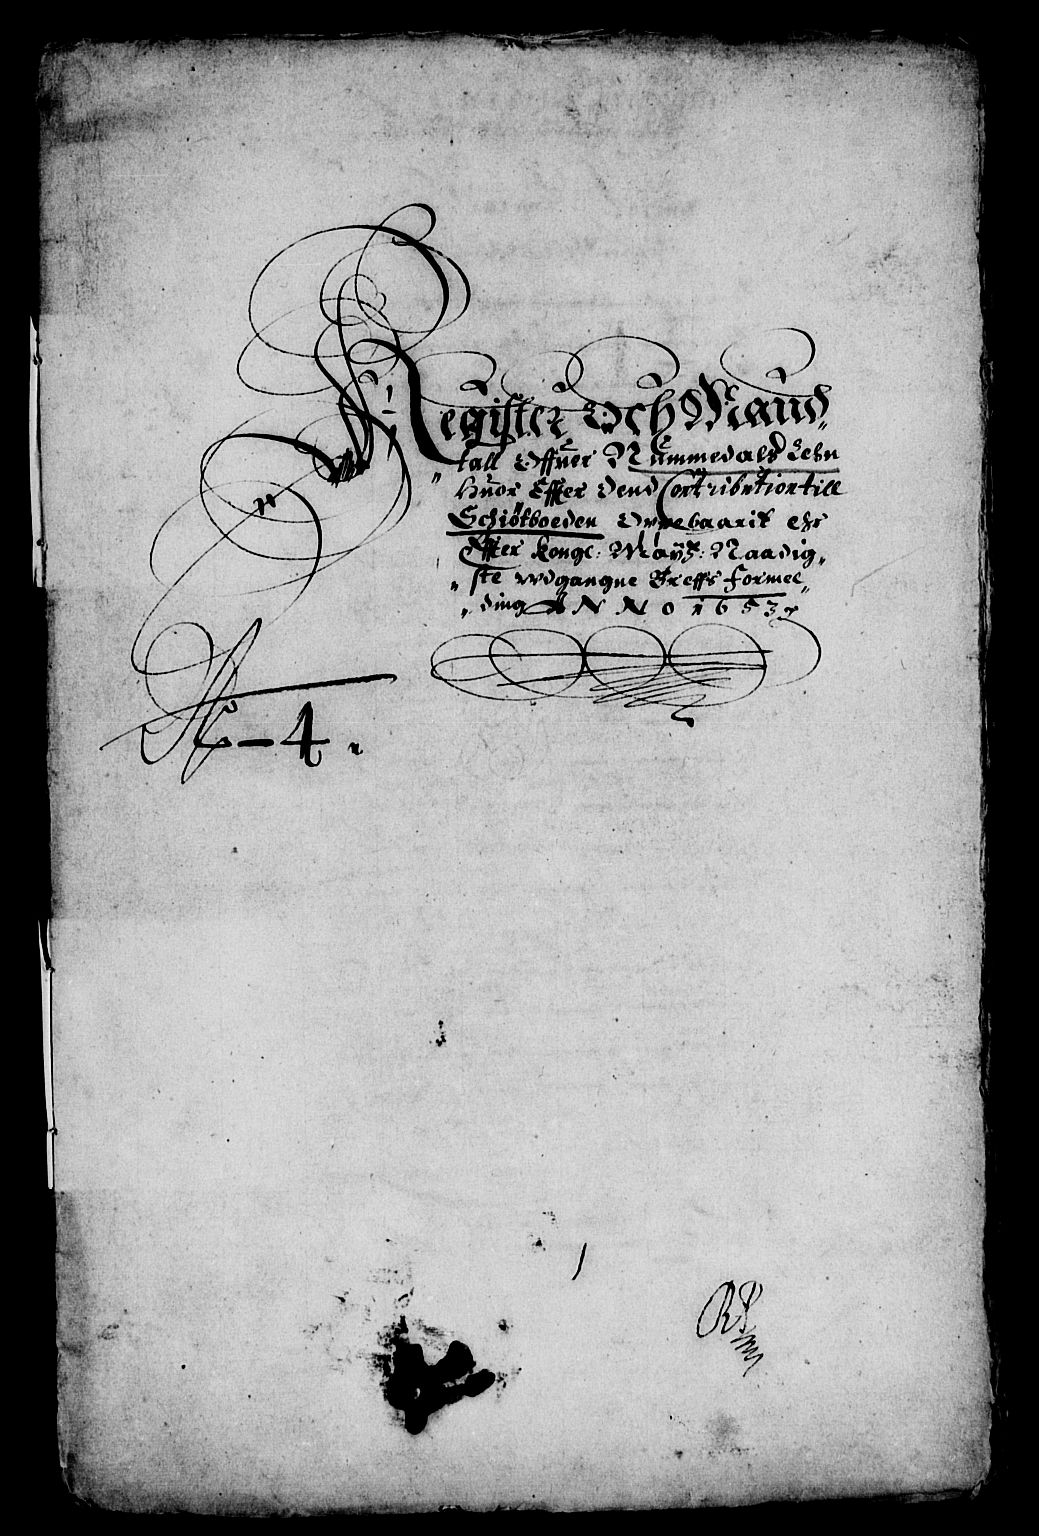 Register Och Mand„
„tall Offuer Nummedals Lehn
Huor Effter Dend Contribution till
Schiøtboeden Oppebaarit ehr
Effter Konge: Mayß: Naadig„
„ste wdgangne Breffs formel„
„ding ANNO 1653
No-4.